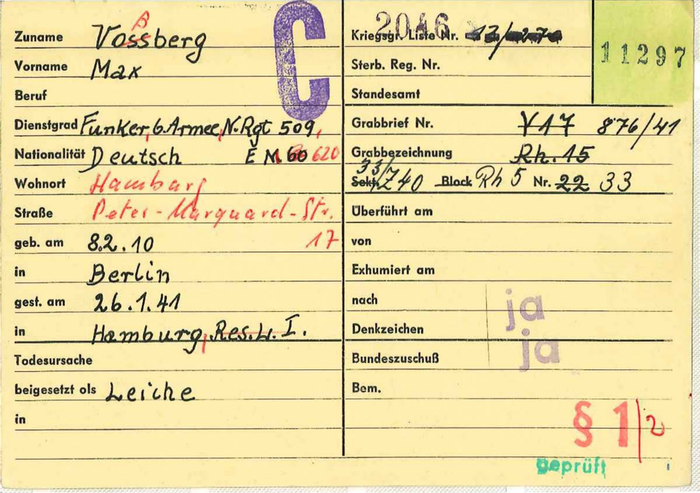 Zuname Voßberg
Vorname Max
Beruf
Dienstgrad Funker, 6. Armee, N. Rgt 509,
Nationalität Deutsch E M. 60 620
Wohnort Hamburg
Straße Peter-Marquard-Str.
geb. am 8.2.10 17
in Berlin
gest. am 26.1.41
in Hamburg, Res. L. I.
Todesursache
beigesetzt als Leiche
in
C
2046
Kriegsgr. Liste Nr.
11297
Sterb. Reg. Nr.
Standesamt
Grabbrief Nr. V17 876/41
Grabbezeichnung Rh. 15
33/
Sekt. Z40 Block Rh 5 Nr. 22 33
Überführt am
von
Exhumiert am
nach ja
Denkzeichen
Bundeszuschuß ja
Bem.
§ 1/2
geprüft